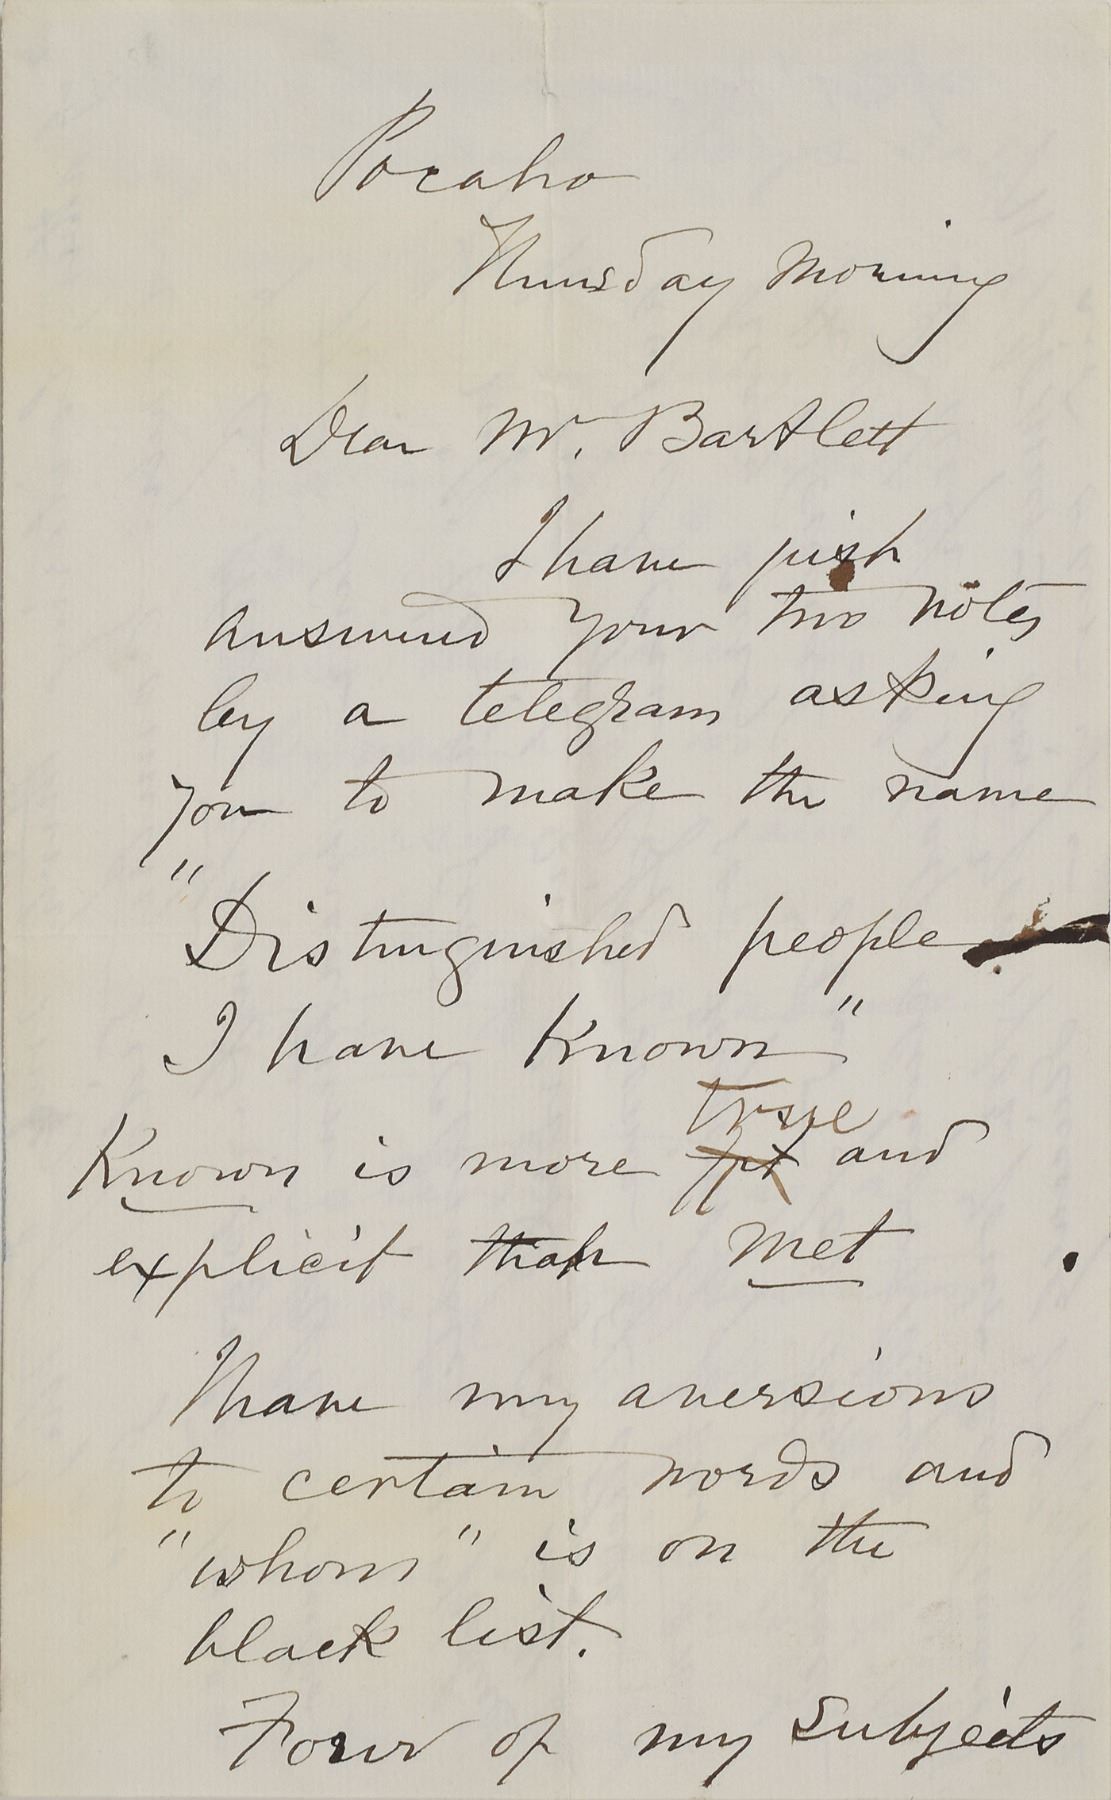 Pocaho
Thursday Morning
Dear Mr. Bartlett
I have just
answered your two notes
by a telegram asking
you to make the name
"Distinguished people
I have Known"
true
Known is more fit and
explicit than met
I have my aversions
to certain words and
"whom" is on the
black list.
Four of my subjects